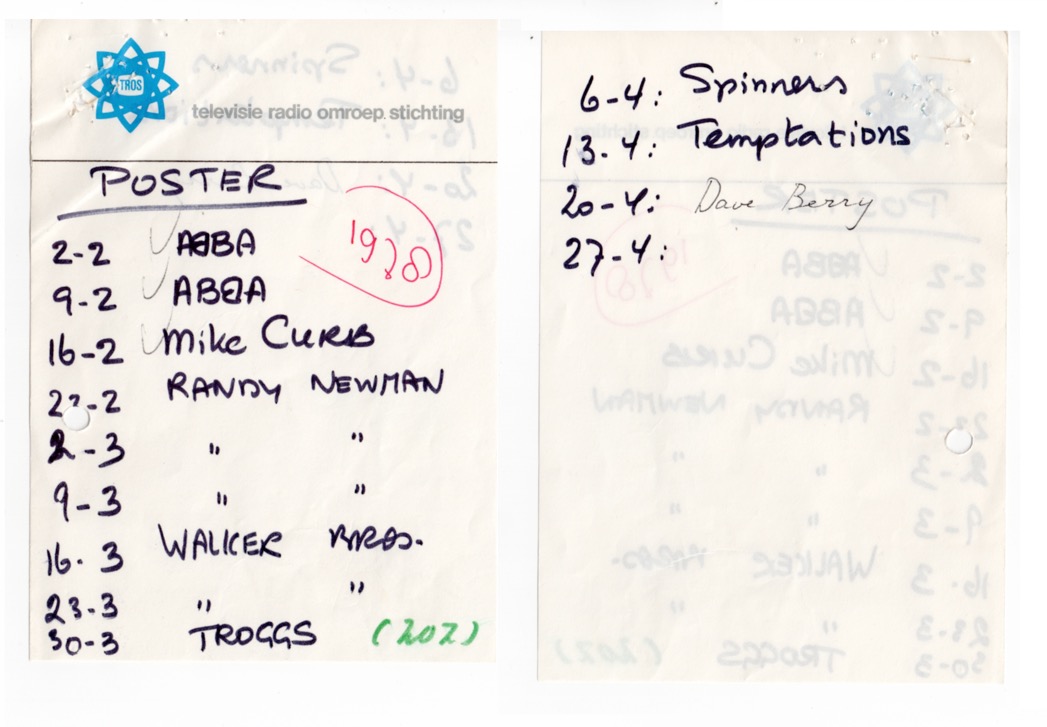 TROS
televisie radio omroep stichting
POSTER
1978
2-2 ABBA
9-2 ABBA
16-2 Mike CURB
23-2 RANDY NEWMAN
2-3 " "
9-3 " "
16-3 WALKER BROS.
23-3 " "
30-3 TROGGS (202)
6-4: Spinners
13-4: Temptations
20-4: Dave Berry
27-4: